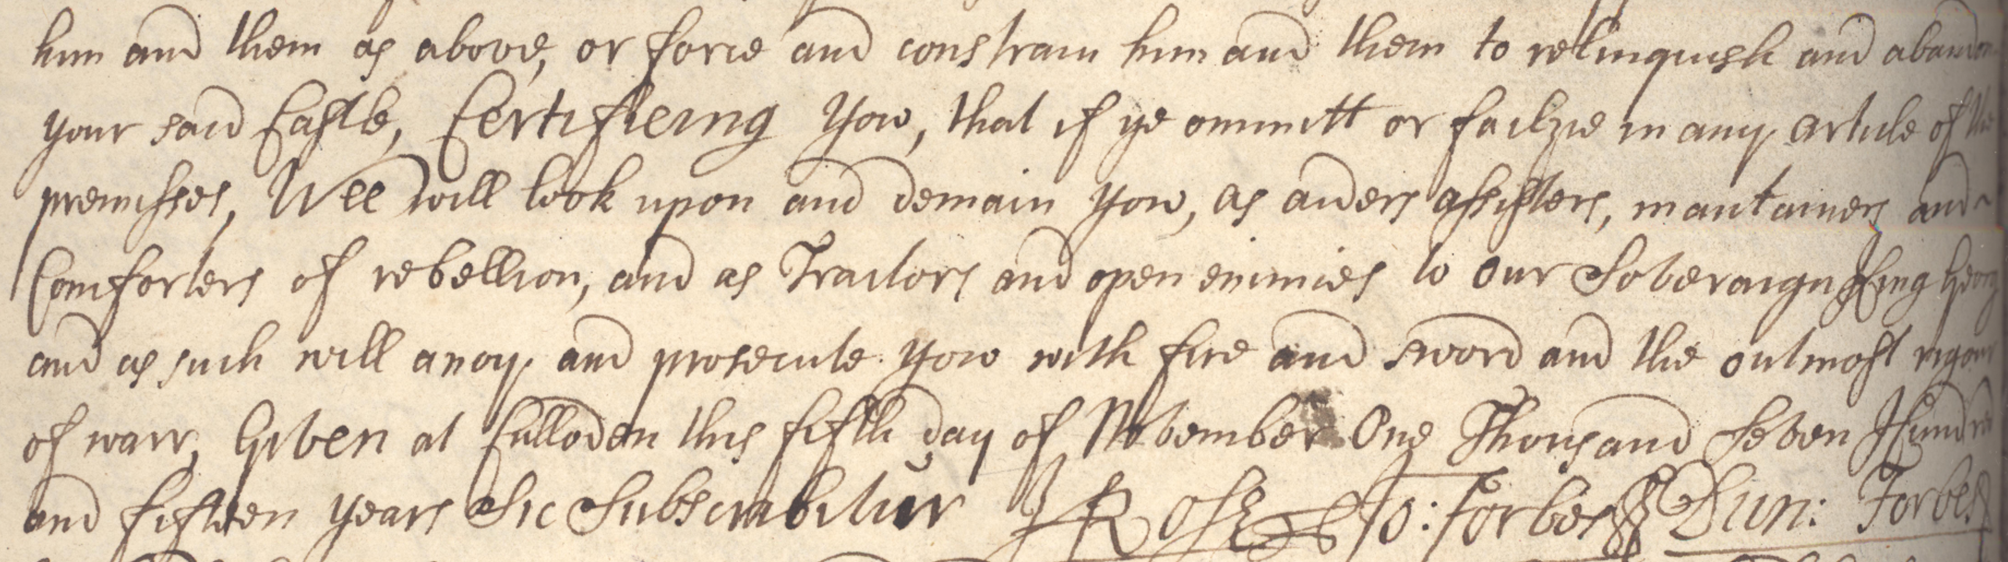 him and them as above, or force and constrain him and them to relinquish and abandon
your said Castle, Certifieing Yow, that if ye ommitt or failzie in any article of the
premisses, Wee will look upon and demain Yow, as aiders assisters, mantainers and
Comforters of rebellion, and as Traitors and open enimies to our Soveraign King George
and as such will anoy, and prosecute Yow with fire and sword and the outmost rigour
of warr, Given at Culloden this fifth day of November One Thousand Seven Hundred
and fifteen years Sic Subscribitur J Rose Jo: Forbes Dun: Forbes